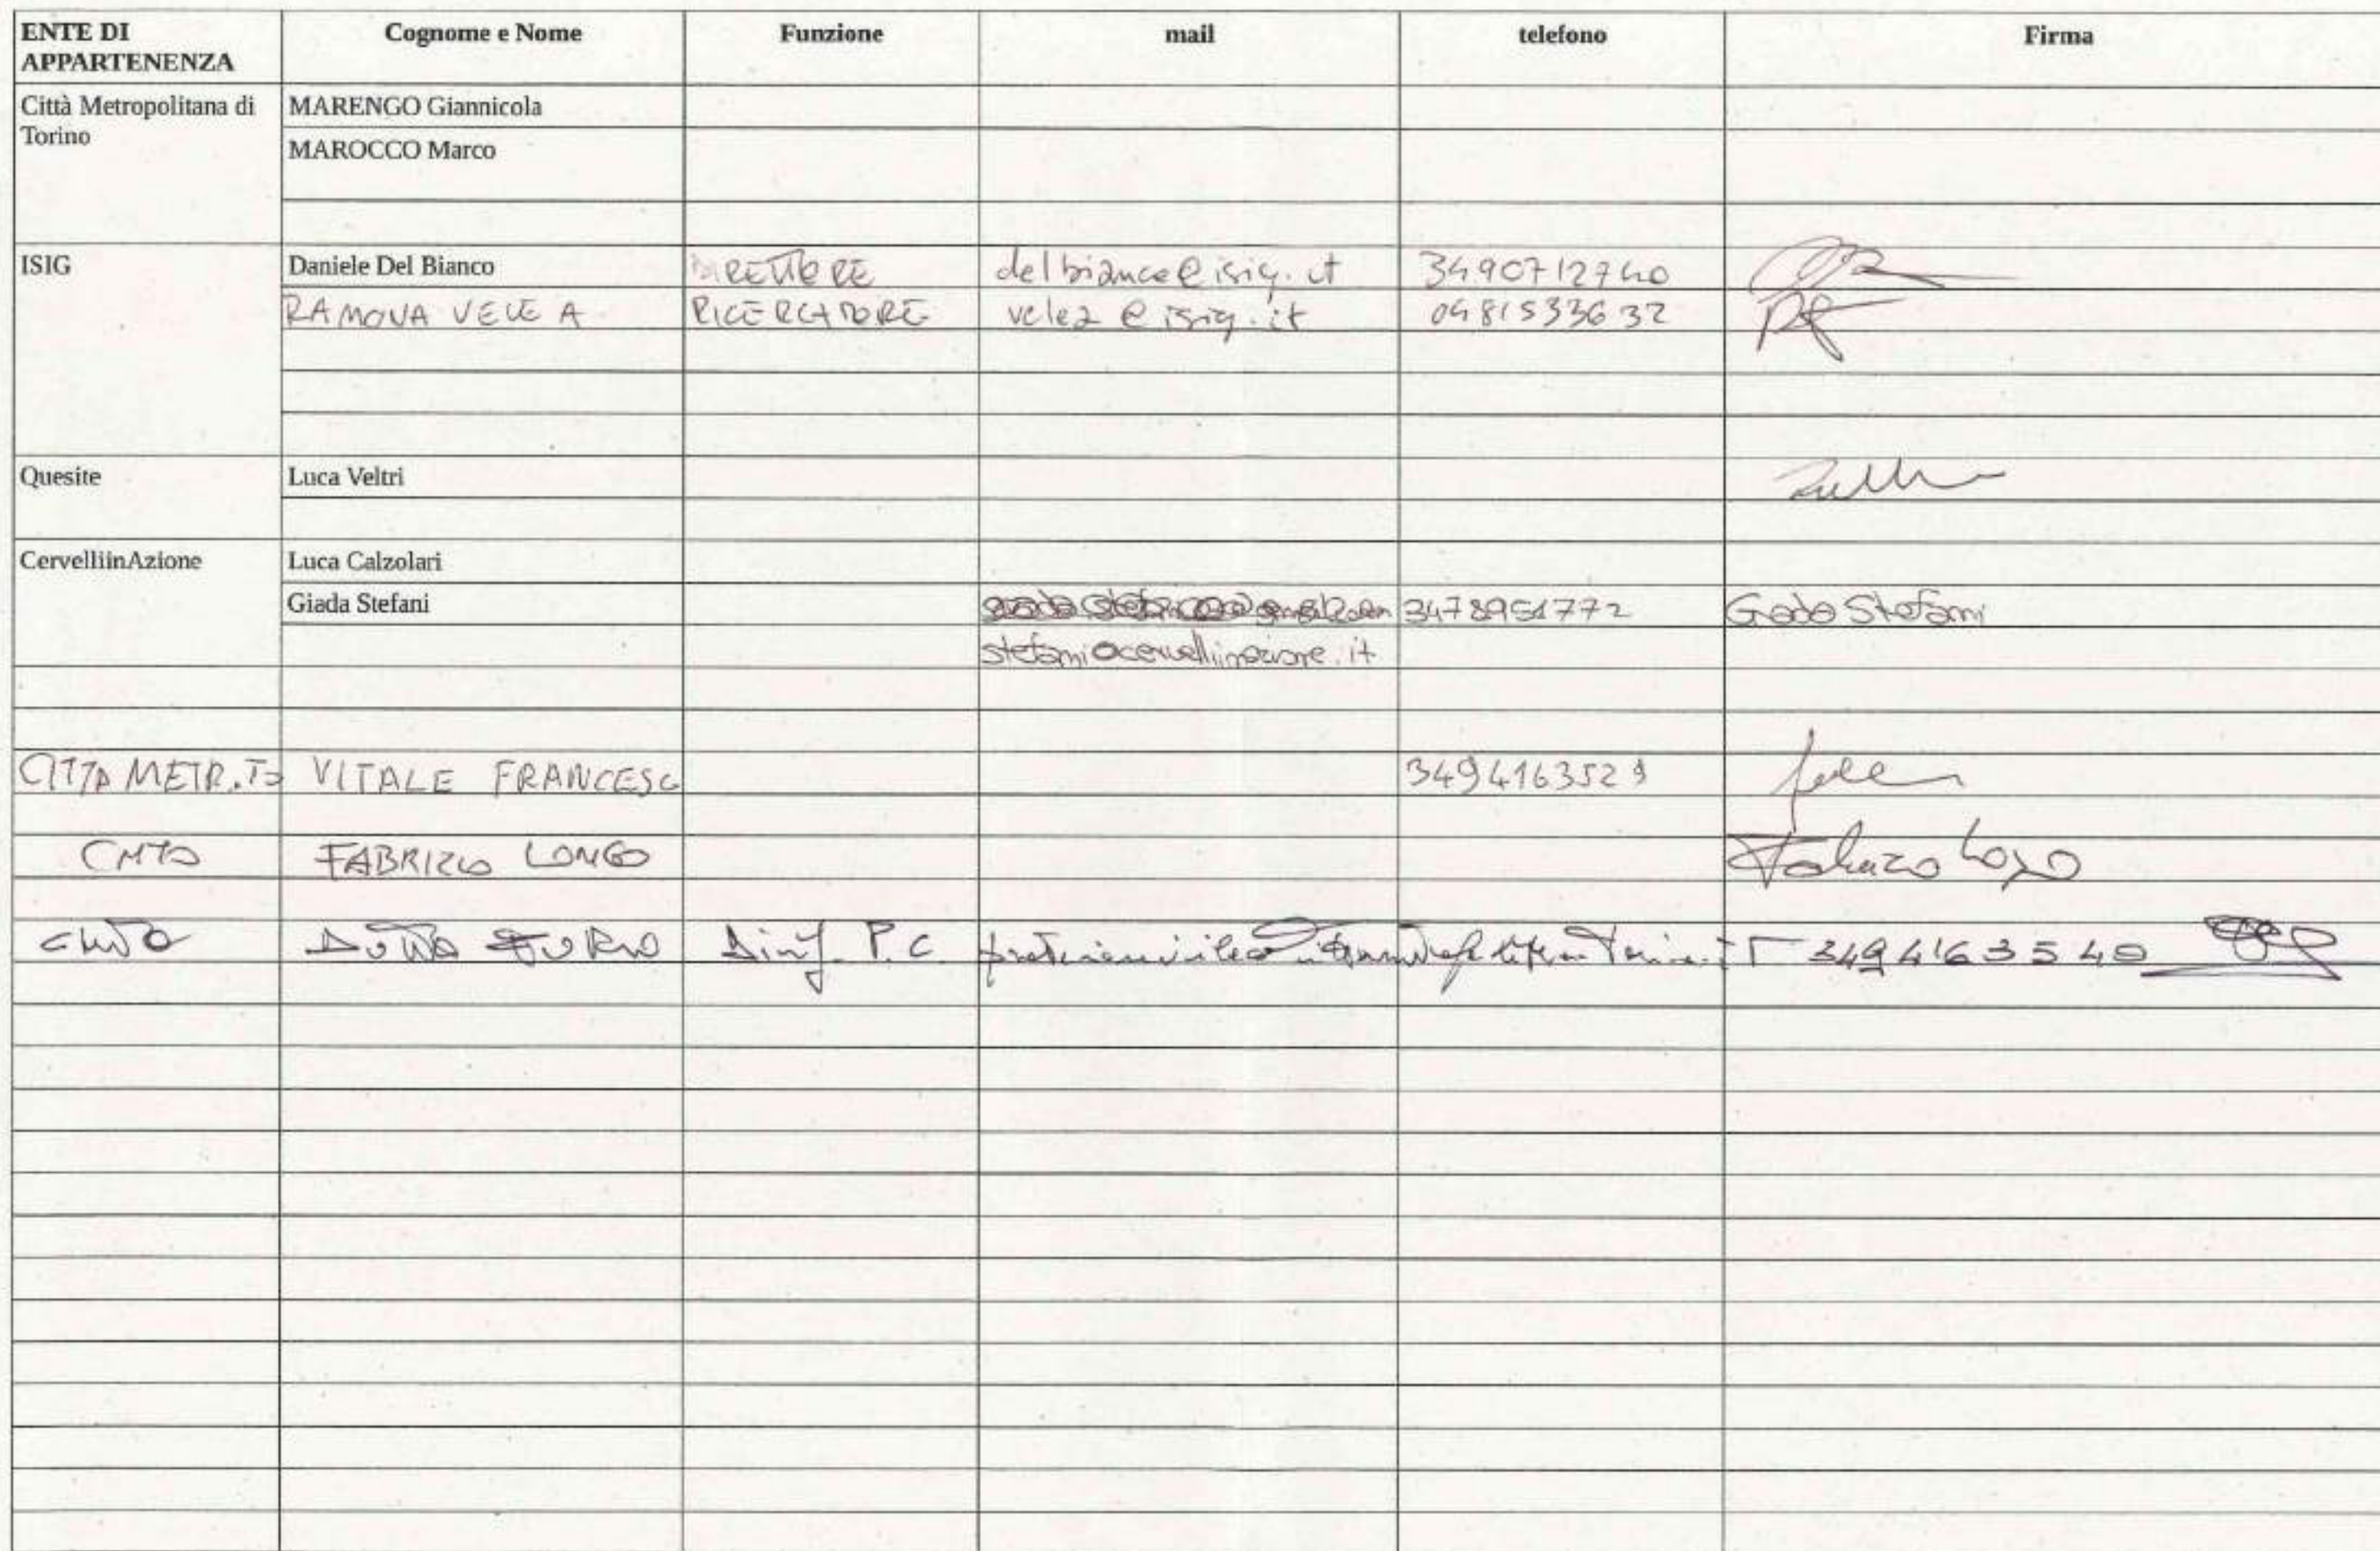 ENTE DI APPARTENENZA Cognome e Nome Funzione mail telefono Firma
Città Metropolitana di Torino MARENGO Giannicola
MAROCCO Marco
ISIG Daniele Del Bianco DIRETTORE delbianco@isig.it 3490712740
RAMONA VELEA RICERCATORE velea@isig.it 0481533632
Quesite Luca Veltri
CervelliinAzione Luca Calzolari
Giada Stefani 3478951772 Giada Stefani
stefani@cervelliinazione.it
CITTA METR.TO VITALE FRANCESCO
CMTO FABRIZIO LONGO Fabrizio Longo
CMTO DUTTO FURIO Dirig. P.C. 3494163540